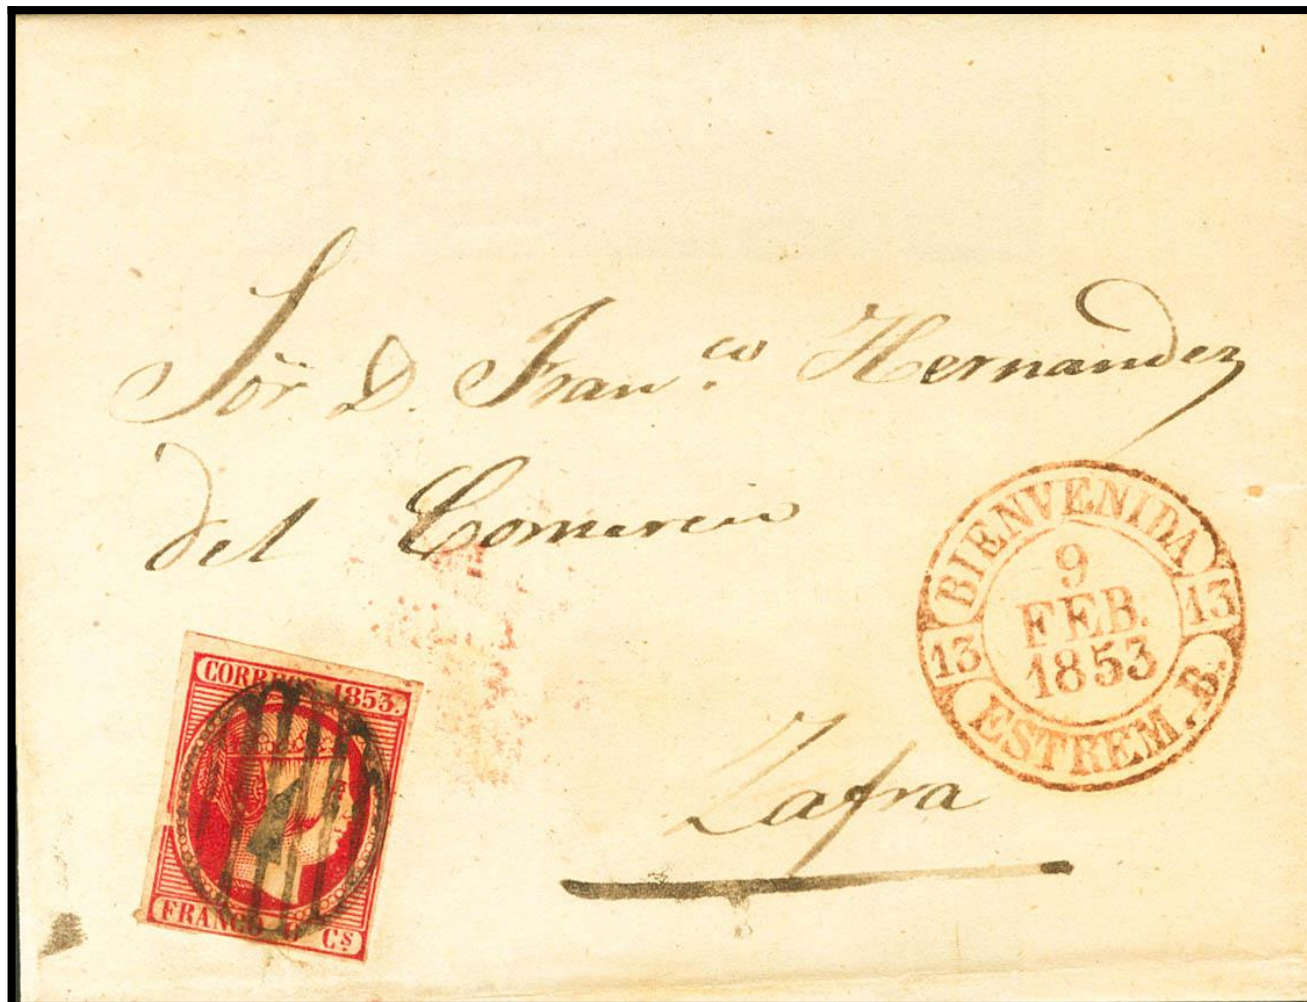 Sör D. Fran.co Hernandez
del Comercio
BIENVENIDA
9
FEB.
1853
13
13
ESTREM. B.
CORREOS 1853.
FRANCO 6 Cs
Zafra